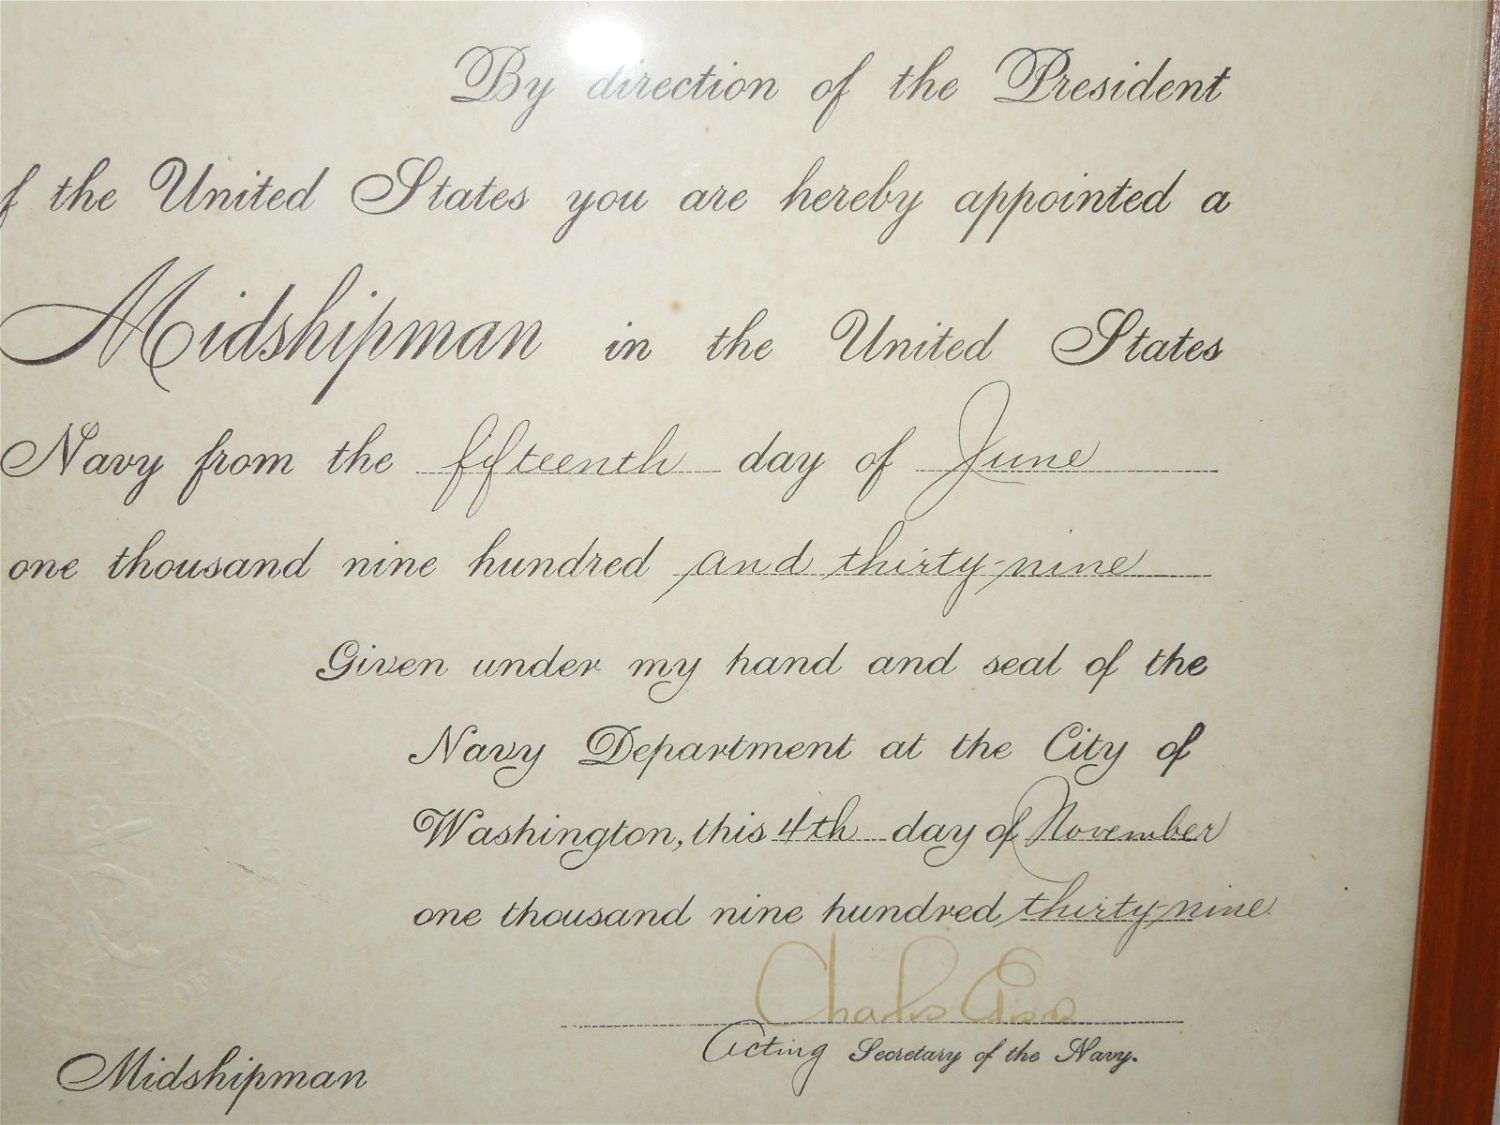 By direction of the President
f the United States you are hereby appointed a
Midshipman in the United States
Navy from the fifteenth day of June
one thousand nine hundred and thirty-nine
Given under my hand and seal of the
Navy Department at the City of
Washington, this 4th day of November
one thousand nine hundred thirty-nine
Charles
Acting Secretary of the Navy.
Midshipman